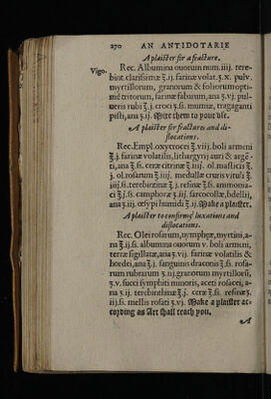 270 AN ANTIDOTARIE
A plaister for a fracture.
Vigo.
Rec. Albumina ouorum num. iiij. tere-
bint. clarissimæ ℥.ij. farinæ volat. ℥.x. pulv.
myrtillorum, granorum & foliorum opti-
mè tritorum, farinæ fabarum, ana ℥.vj. pul-
ueris rubi ℥.j. croci ʒ.ſs. mumiæ, tragaganti
pisti, ana ʒ.ij. Mixe them to your vse.
A plaister for fractures and di-
slocations.
Rec. Empl. oxycrocei ℥.viij. boli armeni
℥.j. farinæ volatilis, lithargyrij auri & argē-
ti, ana ℥.ſs. ceræ citrinæ ℥.iiij. ol. masticis ℥.
j. ol. rosarum ℥.iiij. medullæ cruris vituli ℥.
iiij.ſs. terebintinæ ℥.j. resinæ ℥.ſs. ammonia-
ci ℥.j.ſs. camphoræ ʒ.iij. sarcocollæ, bdellij,
ana ʒ.iij. œsypi humidi ℥.ij. Make a plaister.
A plaister to confirme luxations and
dislocations.
Rec. Olei rosarum, nympheæ, myrtini, a-
na ℥.ij.ſs. albumina ouorum v. boli armeni,
terræ sigillatæ, ana ʒ.vj. farinæ volatilis &
hordei, ana ℥.j. sanguinis draconis ℥.ſs. rosa-
rum rubrarum ʒ.iij. granorum myrtillorū,
ʒ.v. succi symphiti minoris, aceti rosacei, a-
na ʒ.ij. terebinthinæ ℥.j. ceræ ℥.ſs. resinæ ʒ.
ij.ſs. mellis rosati ʒ.vj. Make a plaister ac-
cording as Art shall teach you.
A